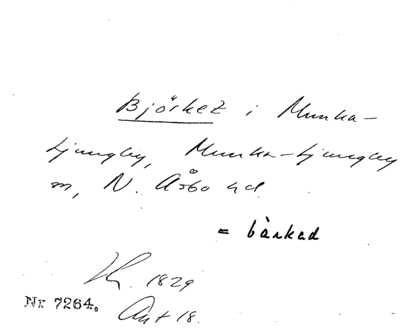 Björket i Munka-
Ljungby, Munka-Ljungby
sn, N. Åsbo hd
= bàrkad
1829
Nr 7264. Ant 18.